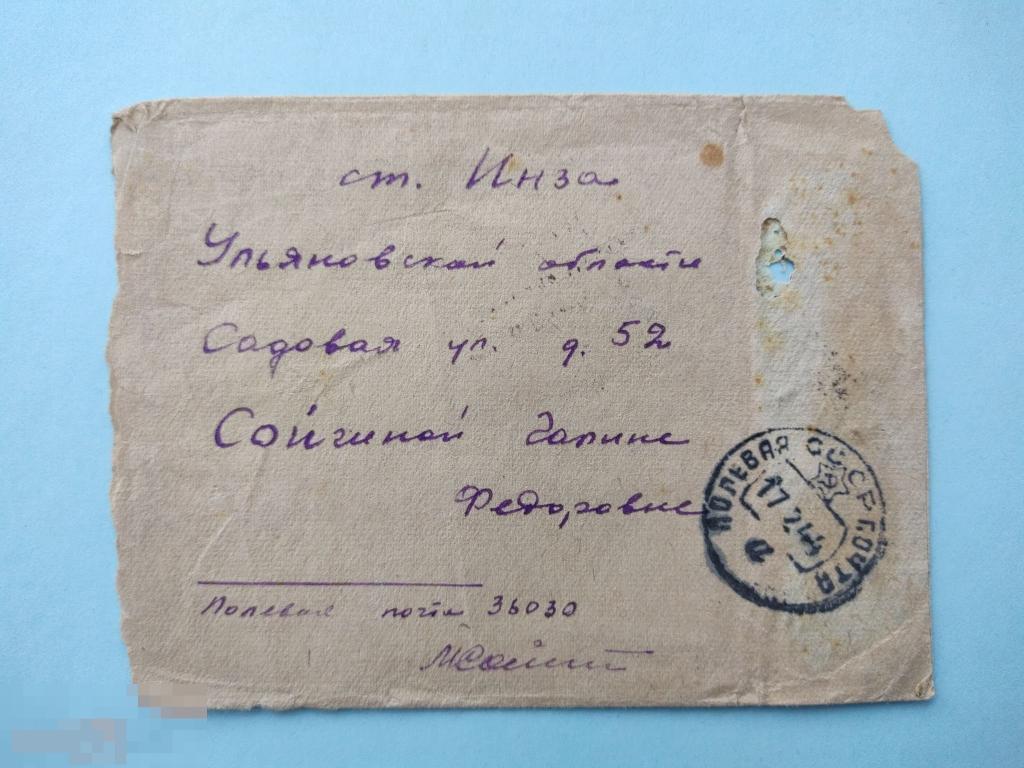 ст. Инза
Ульяновской области
Садовая ул. д. 52
Сойгиной Галине
Федоровне
ПОЛЕВАЯ СССР ПОЧТА
17
Полевая почта 36030